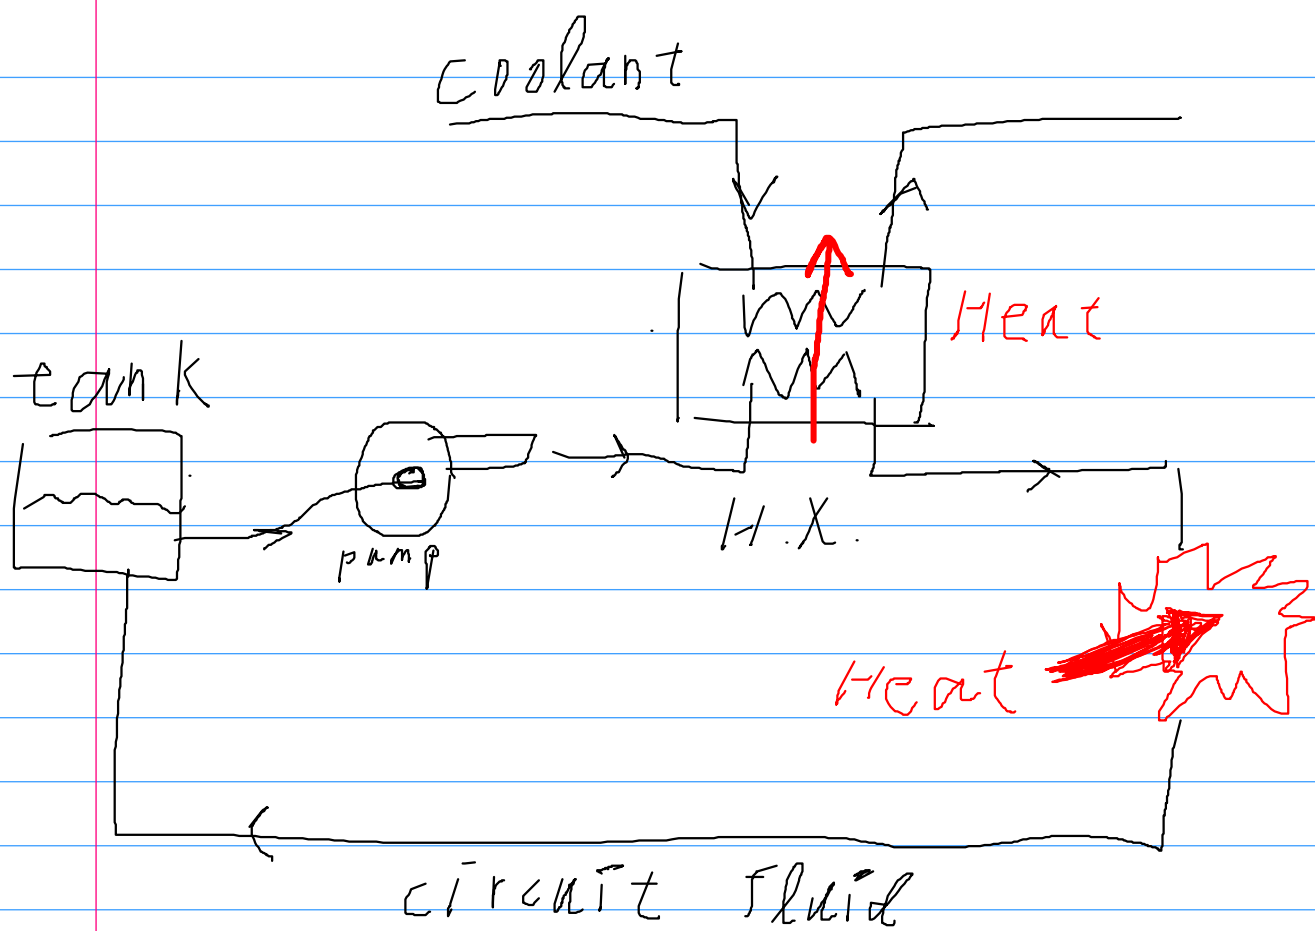 coolant
Heat
tank
pump
H.X.
Heat
circuit fluid